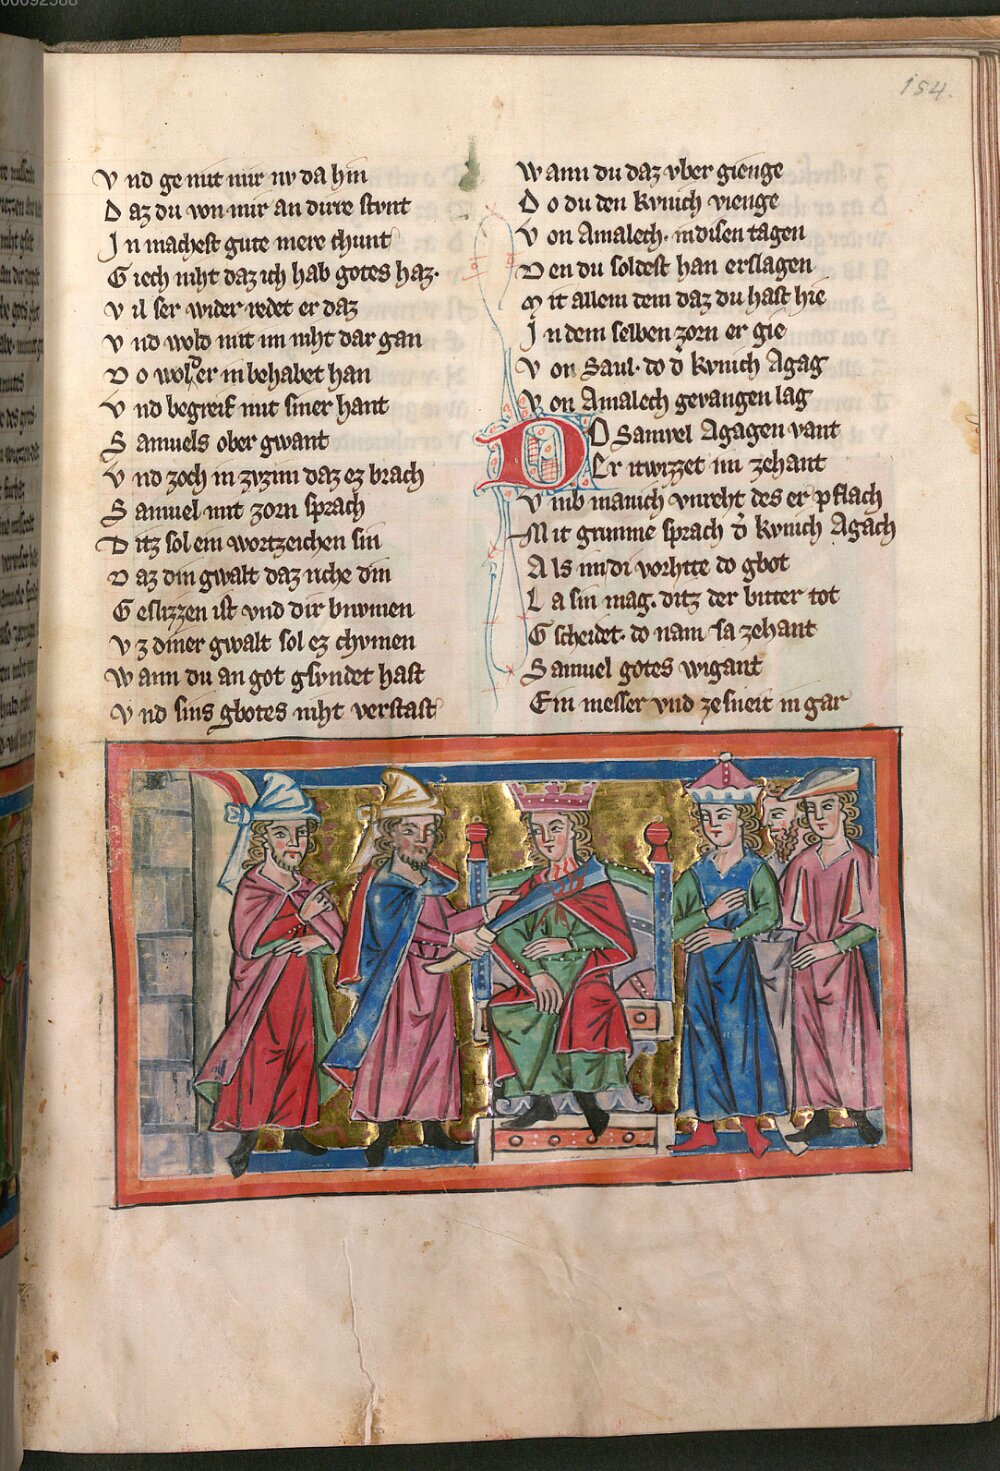 154.
V nd ge mit mir nv da hin
D az du von mir an dirre stvnt
I n machest gute mere chunt
G iech niht daz ich hab gotes haz.
V il ser wider redet er daz
V nd wold mit im niht dar gan
D o wolder in behabet han
V nd begreif mit siner hant
S amuels ober gwant
V nd zoch in zv zim daz ez brach
S amuel mit zorn sprach
D itz sol ein wortzeichen sin
D az din gwalt daz riche din
G eslizzen ist vnd dir bnvmen
V z diner gwalt sol ez chvmen
W ann du an got gsvndet hast
V nd sins gbotes niht verstast
W ann du daz vber gienge
D o du den kvnich vienge
V on Amalech. in disen tagen
D en du soldest han erslagen
M it allem dem daz du hast hie
I n dem selben zorn er gie
V on Saul. do d̾ kvnich Agag
V on Amalech gevangen lag
DO Samvel Agagen vant
Er itwizzet im zehant
V mb manich vnreht des er pflach
M it grimme sprach d̾ kvnich Agach
A ls im di vorhtte do gbot
L a sin mag. ditz der bitter tot
G scheidet. do nam sa zehant
S amuel gotes wigant
E in messer vnd zesneit in gar